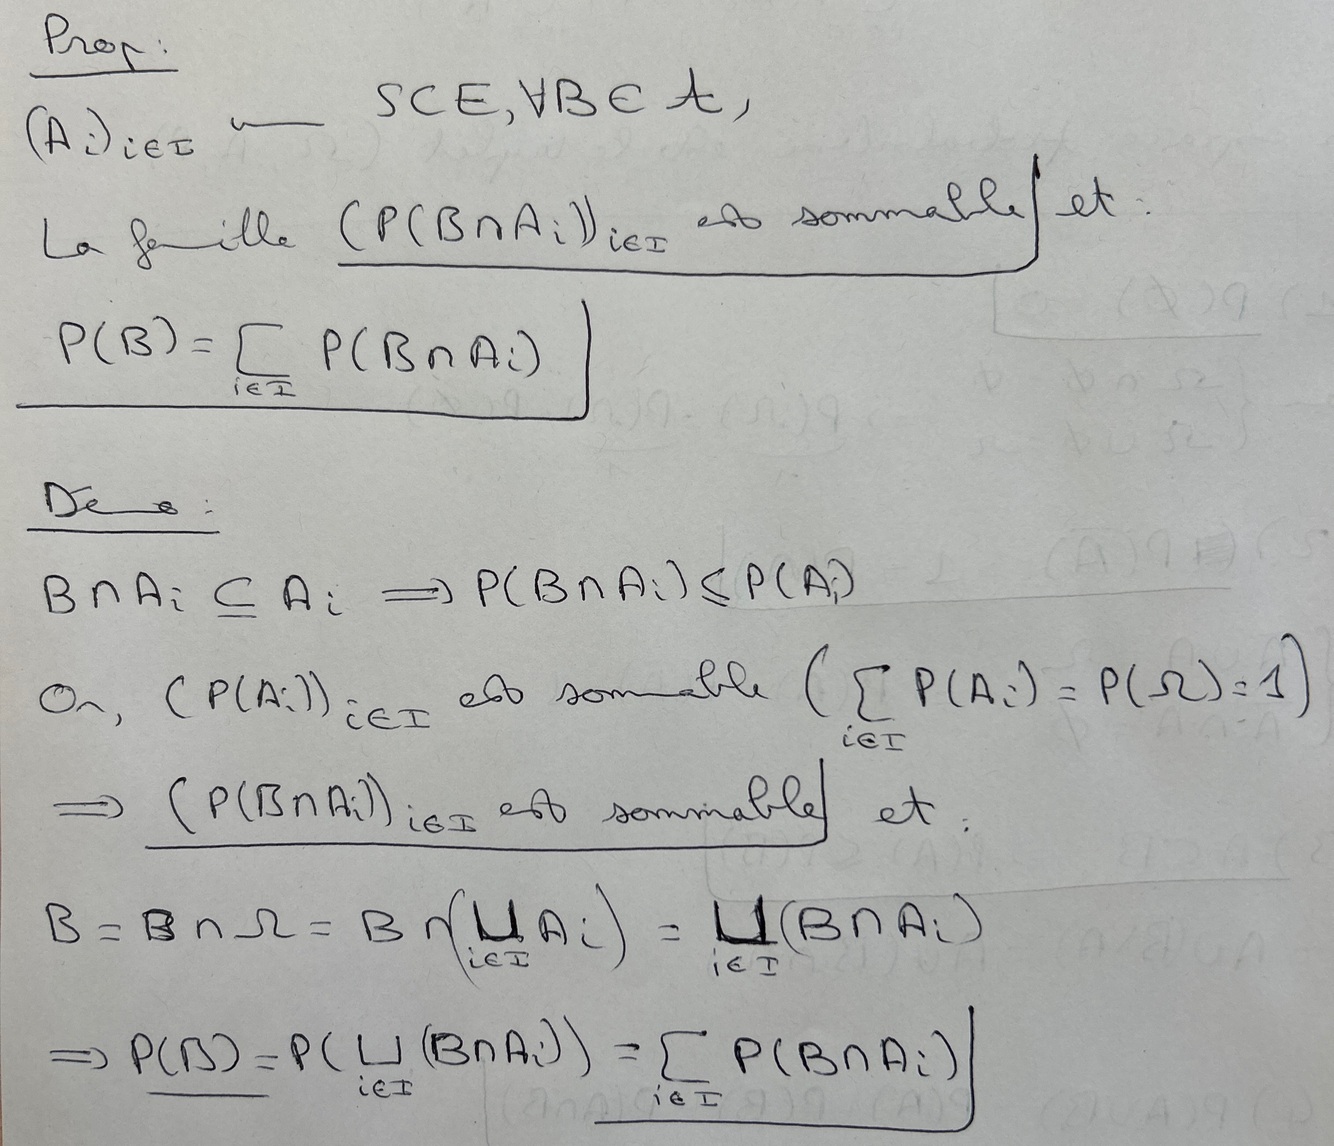 Prop:
(Ai)i∈I un SCE, ∀B ∈ A,
La famille (P(B∩Ai))i∈I est sommable et :
P(B) = ∑i∈I P(B∩Ai)
Démo :
B∩Ai ⊆ Ai ⟹ P(B∩Ai) ≤ P(Ai)
Or, (P(Ai))i∈I est sommable (∑i∈I P(Ai) = P(Ω) = 1)
⟹ (P(B∩Ai))i∈I est sommable et :
B = B∩Ω = B∩(⊔i∈I Ai) = ⊔i∈I (B∩Ai)
⟹ P(B) = P(⊔i∈I (B∩Ai)) = ∑i∈I P(B∩Ai)